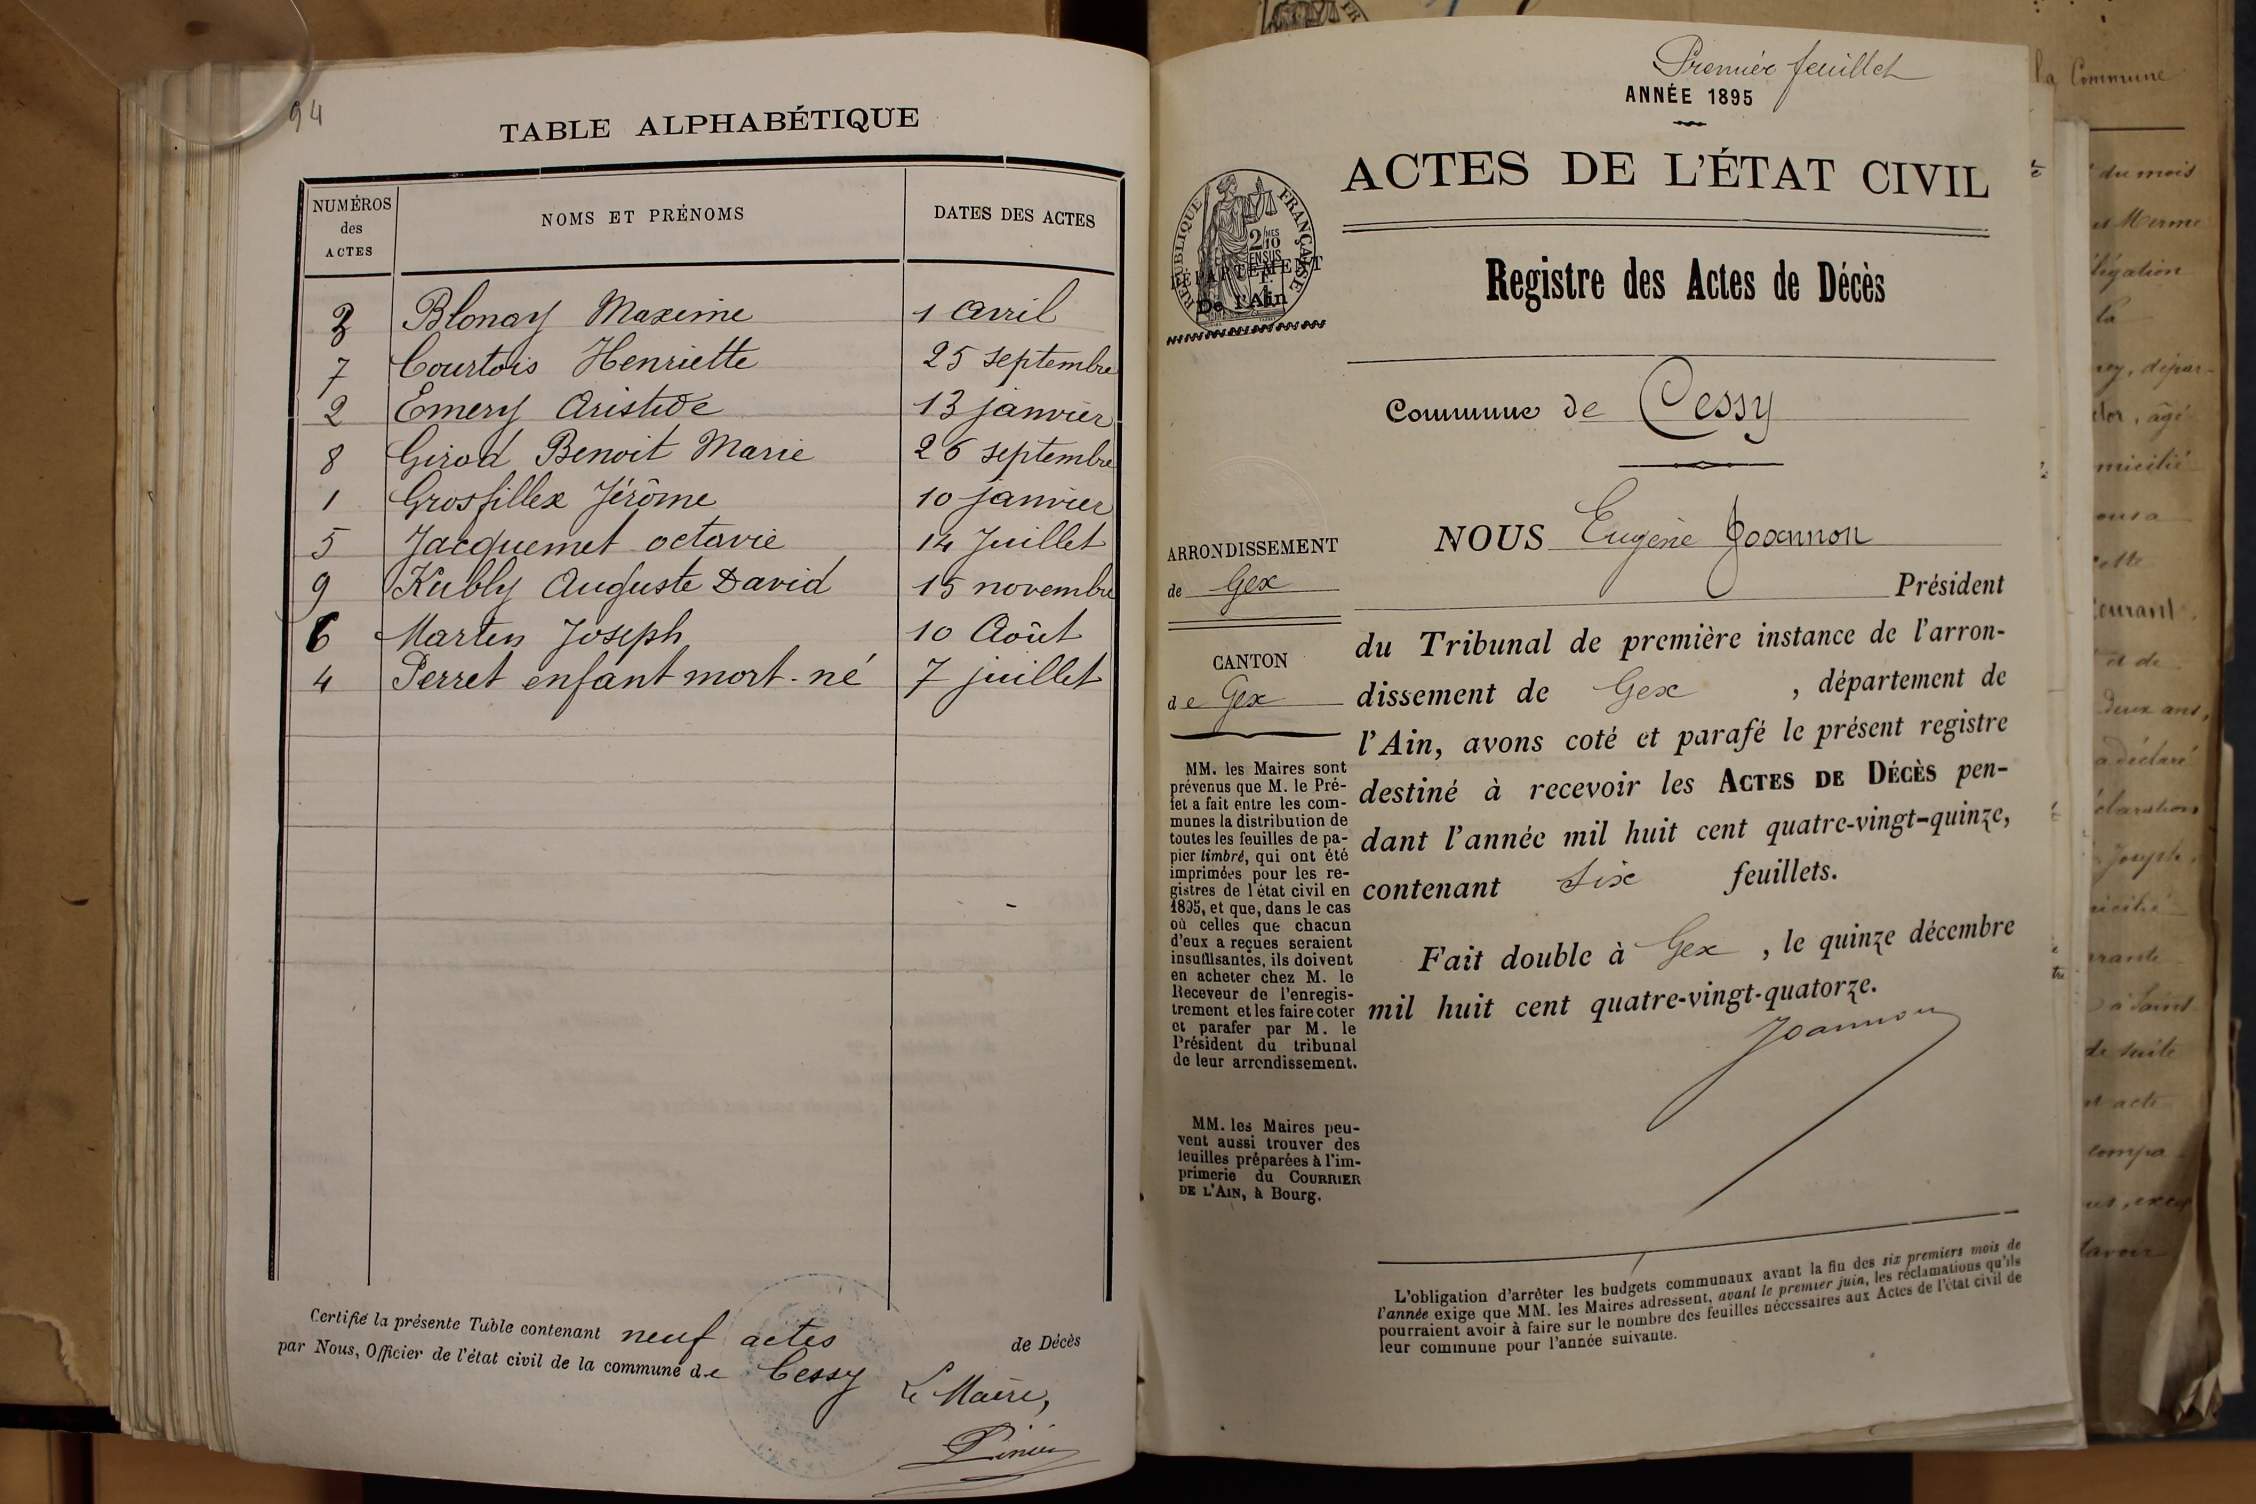 94
TABLE ALPHABÉTIQUE
NUMÉROS des ACTES
NOMS ET PRÉNOMS
DATES DES ACTES
3 Blonay Maxime 1 Avril
7 Courtois Henriette 25 septembre
2 Emery Aristide 13 janvier
8 Girod Benoit Marie 26 septembre
1 Grosfillex Jérôme 10 janvier
5 Jacquemet octavie 14 Juillet
9 Kubly Auguste David 15 novembre
6 Marten Joseph 10 Août
4 Perret enfant mort-né 7 juillet
Certifié la présente Table contenant neuf actes de Décès
par Nous, Officier de l'état civil de la commune de Cessy
Le Maire,
Premier feuillet
ANNÉE 1895
ACTES DE L'ÉTAT CIVIL
RÉPUBLIQUE FRANÇAISE
2/10
EN SUS
DÉPARTEMENT
De l'Ain
Registre des Actes de Décès
Commune de Cessy
NOUS Eugène Joannon
Président
du Tribunal de première instance de l'arron-
dissement de Gex, département de
l'Ain, avons coté et parafé le présent registre
destiné à recevoir les ACTES DE DÉCÈS pen-
dant l'année mil huit cent quatre-vingt-quinze,
contenant six feuillets.
Fait double à Gex, le quinze décembre
mil huit cent quatre-vingt-quatorze.
Joannon
ARRONDISSEMENT
de Gex
CANTON
de Gex
MM. les Maires sont
prévenus que M. le Pré-
fet a fait entre les com-
munes la distribution de
toutes les feuilles de pa-
pier timbré, qui ont été
imprimées pour les re-
gistres de l'état civil en
1895, et que, dans le cas
où celles que chacun
d'eux a reçues seraient
insuffisantes, ils doivent
en acheter chez M. le
Receveur de l'enregis-
trement et les faire coter
et parafer par M. le
Président du tribunal
de leur arrondissement.
MM. les Maires peu-
vent aussi trouver des
feuilles préparées à l'im-
primerie du COURRIER
DE L'AIN, à Bourg.
L'obligation d'arrêter les budgets communaux avant la fin des six premiers mois de
l'année exige que MM. les Maires adressent, avant le premier juin, les réclamations qu'ils
pourraient avoir à faire sur le nombre des feuilles nécessaires aux Actes de l'état civil de
leur commune pour l'année suivante.
la Commune
du mois